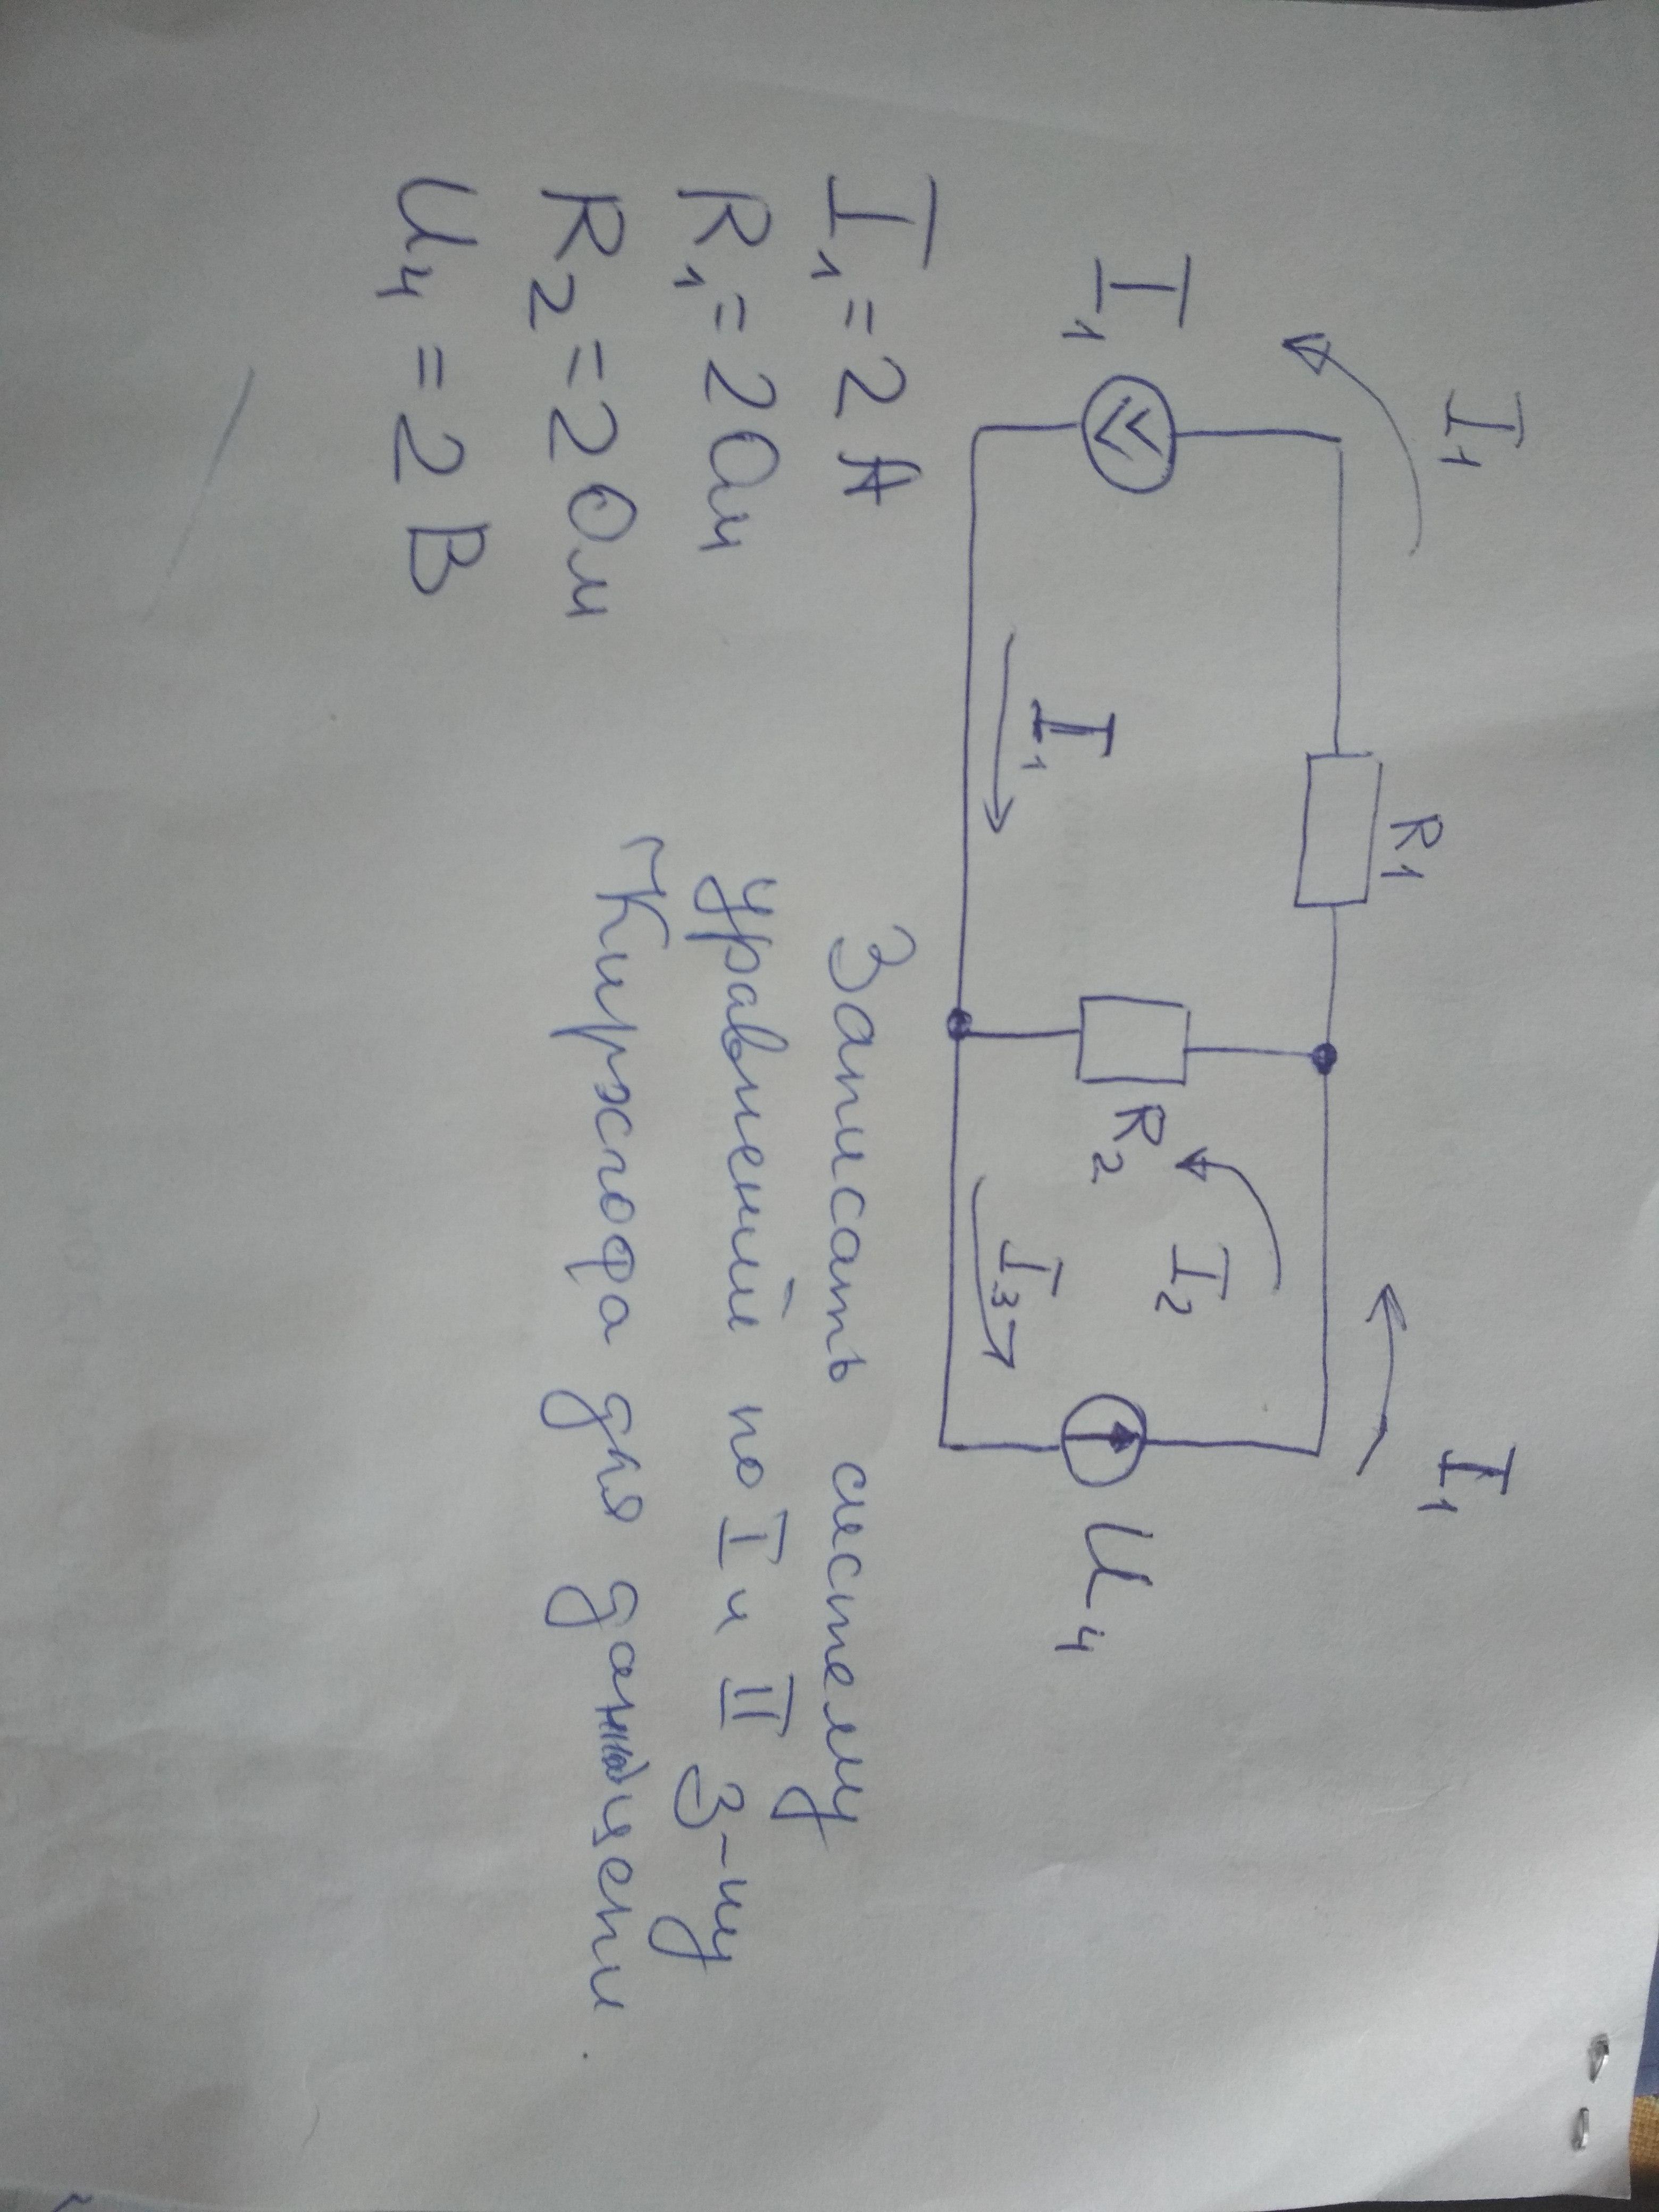 I₁
I₁
R1
I₁
R₂
I₂
I₃
I₁
U₄
I₁ = 2 А
R₁ = 2 Ом
R₂ = 2 Ом
U₄ = 2 В
Записать систему
уравнений по I и II З-му
Кирхгофа для данной цепи.